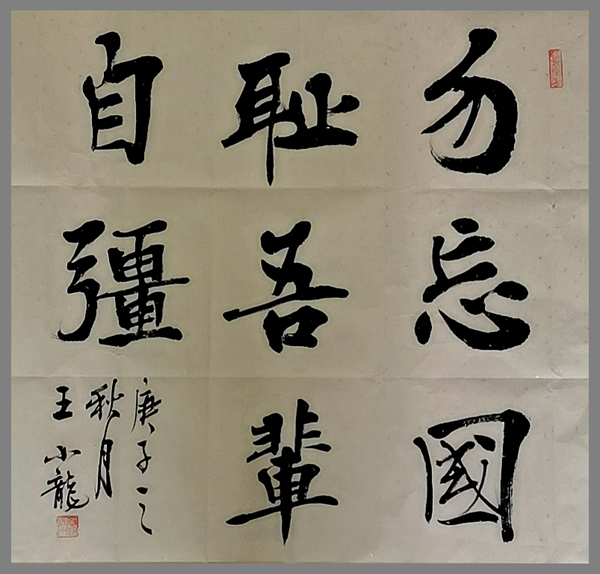 勿忘國
耻吾輩
自彊
庚子之
秋月
王小龍